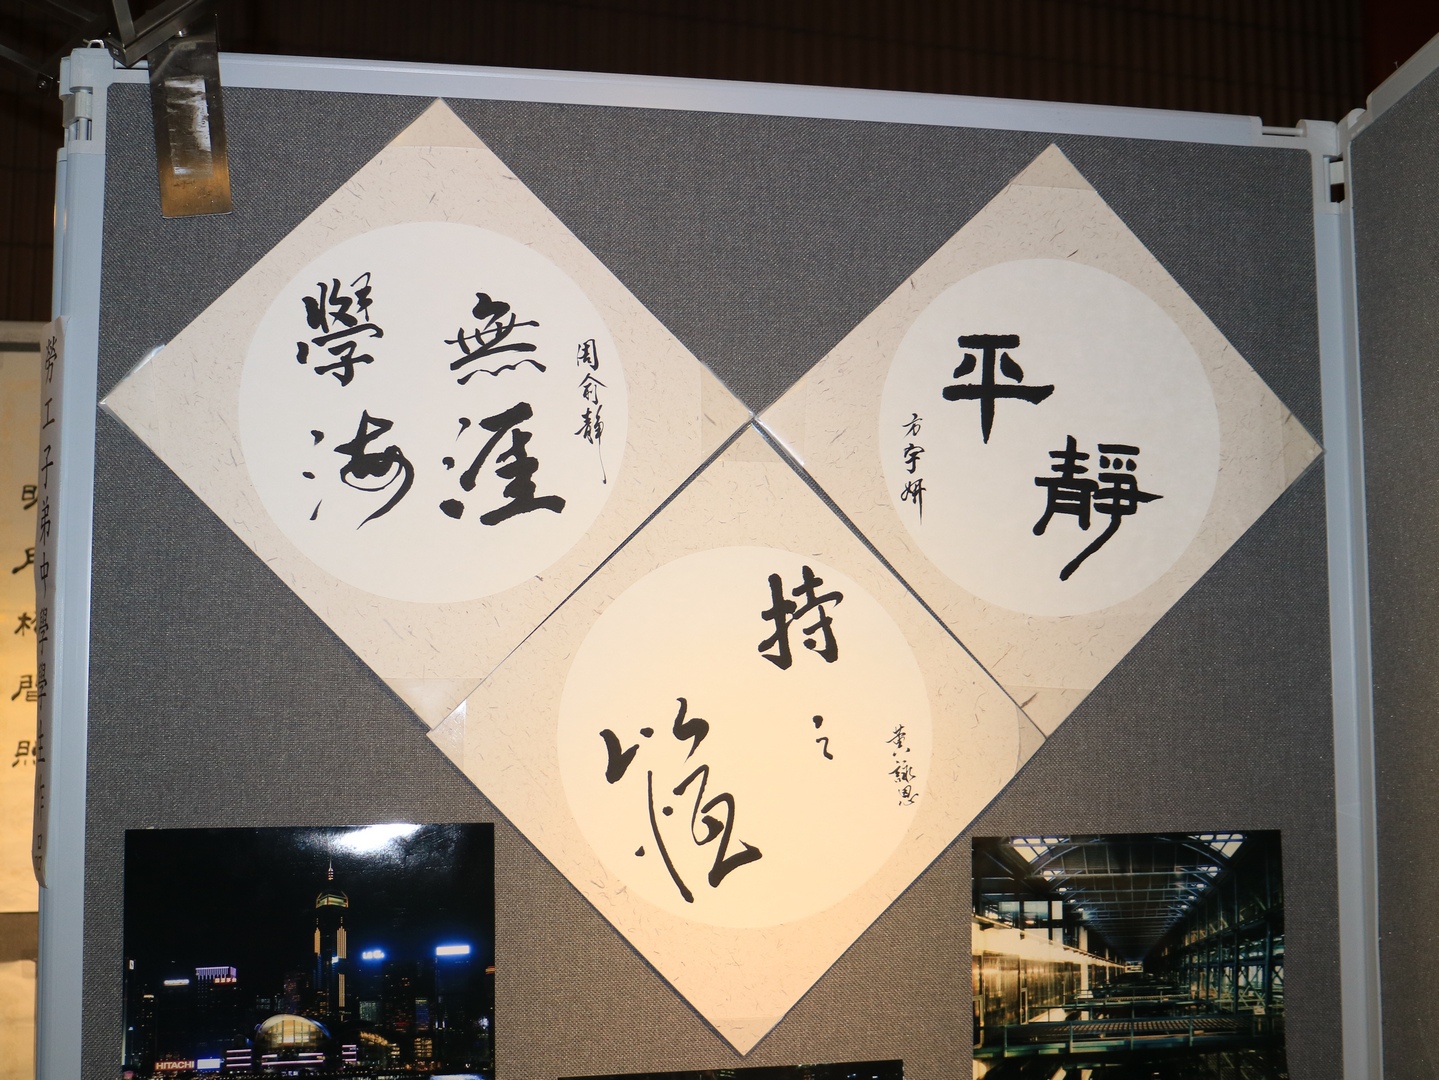 學海
無涯
周俞靜
平靜
方宇妍
持之
以恆
黃詠恩
勞工子弟中學學生作品
HITACHI